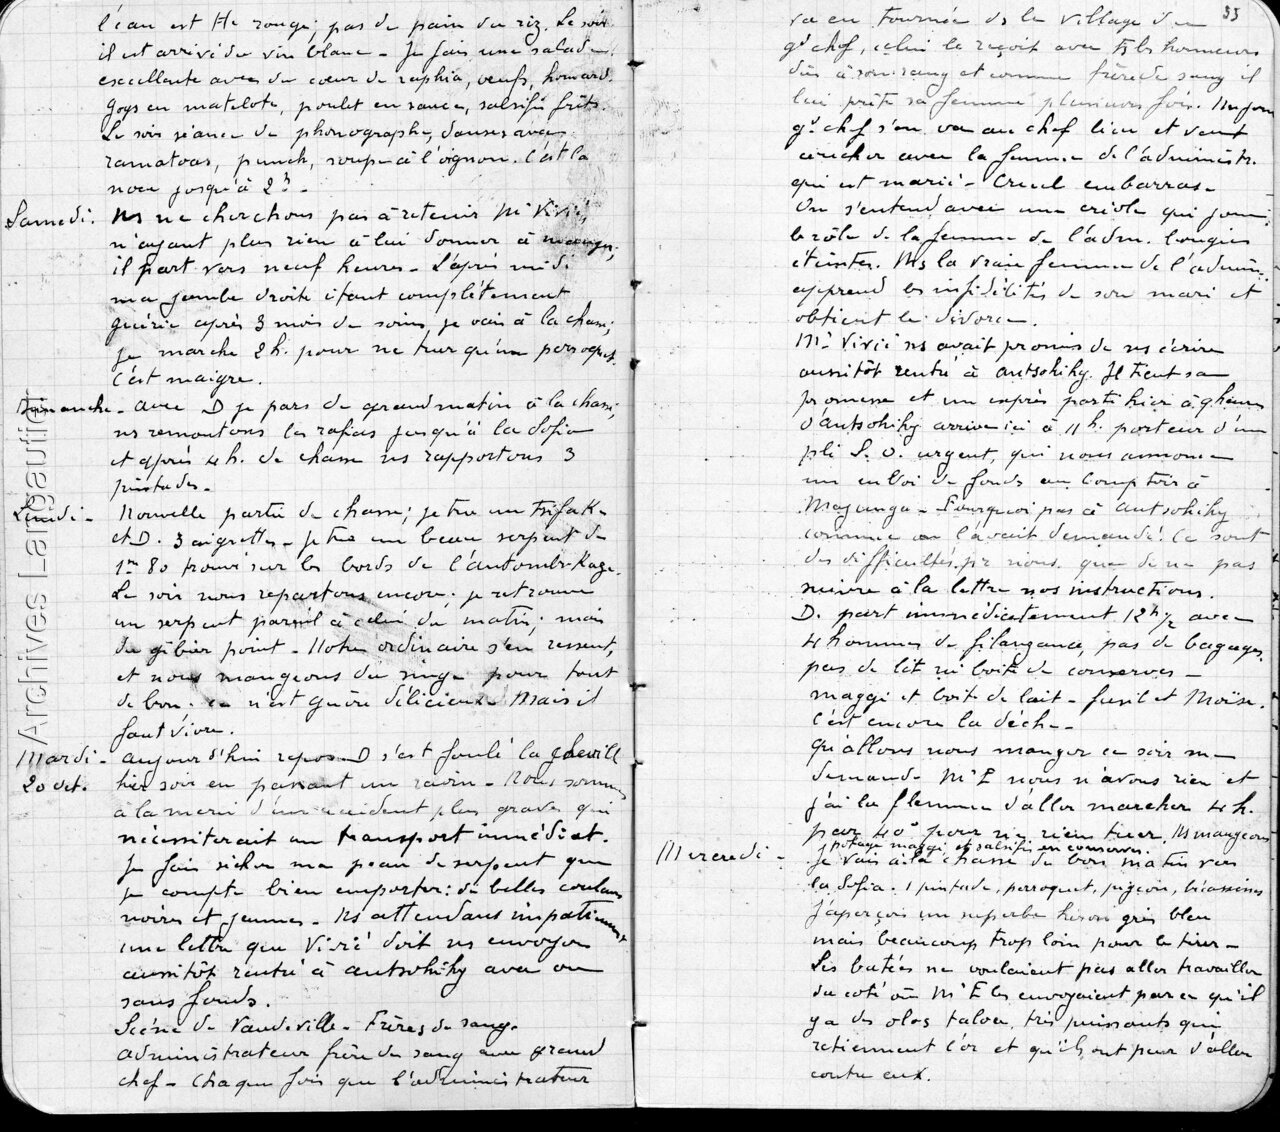 l'eau est tte rouge; pas de pain du riz. Le soir
il est arrivé du vin blanc - Je fais une salade
excellente avec du cœur de raphia, oeufs, homard.
Gogs en matelote, poulet en sauce, salsifis frits.
Le soir séance de phonographe, danses avec
ramatoas, punch, soupe à l'oignon. C'est la
noce jusqu'à 2h -
Samedi. Ns ne cherchons pas à retenir Mr Vivié
n'ayant plus rien à lui donner à manger;
il part vers neuf heures - L'après midi
ma jambe droite étant complètement
guérie après 3 mois de soins, je vais à la chasse;
je marche 2h. pour ne tuer qu'un perroquet.
C'est maigre.
Dimanche - avec D je pars de grand matin à la chasse;
ns remontons les rafias jusqu'à la Sofia
et après 4h. de chasse ns rapportons 3
pintades -
Lundi - Nouvelle partie de chasse; je tue un tsifak
et D. 3 aigrettes - je tue un beau serpent de
1m 80 trouvé sur les bords de l'antombi-Kage.
Le soir nous repartons encore; je retrouve
un serpent pareil à celui du matin; mais
du gibier point - Notre ordinaire s'en ressent,
et nous mangeons du singe pour tout
de bon. ce n'est guère délicieux. Mais il
faut vivre.
Mardi - aujourd'hui repos D s'est foulé la cheville
20 oct. hier soir en passant un ravin - Nous sommes
à la merci d'un accident plus grave qui
nécessiterait un transport immédiat.
Je fais sécher ma peau de serpent que
je compte bien emporter: de belles couleurs
noires et jaunes - Ns attendons impatiemment
une lettre que Vivié doit ns envoyer
aussitôt rentré à antsohihy avec ou
sans fonds.
Scène de Vaudeville - Frères de sang.
administrateur frère de sang avec grand
chef - Chaque fois que l'administrateur
33
va en tournée ds le village du
gd chef, celui le reçoit avec ts les honneurs
dûs à son rang et comme frère de sang il
lui prête sa femme plusieurs fois. Un jour
gd chef s'en va au chef lieu et veut
coucher avec la femme de l'administr.
qui est marié - Cruel embarras.
On s'entend avec une créole qui joue
le rôle de la femme de l'adm. bougies
éteintes. Ms la vraie femme de l'admin.
apprend les infidélités de son mari et
obtient le divorce.
Mr Vivié ns avait promis de ns écrire
aussitôt rentré à antsohihy. Il tient sa
promesse et un exprès parti hier à 9 heures
d'antsohihy arrive ici à 11 h. porteur d'un
pli S. O. urgent, qui nous annonce
un envoi de fonds au Comptoir à
Majunga - Pourquoi pas à antsohihy
comme on l'avait demandé! Ce sont
des difficultés pr nous, que de ne pas
suivre à la lettre nos instructions.
D. part immédiatement 12h1/2 avec
4 hommes de filanzane, pas de bagages,
pas de lit ni boîte de conserves -
maggi et boîte de lait - fusil et Moïse.
C'est encore la dèche -
Qu'allons nous manger ce soir me
demande Mr E nous n'avons rien et
j'ai la flemme d'aller marcher 4 h.
par 40° pour ne rien tuer. Ns mangeons
potage maggi et salsifis en conserves.
Mercredi - Je vais à la chasse de bon matin vers
la Sofia. 1 pintade, perroquet, pigeon, bécassines
j'aperçois un superbe héron gris bleu
mais beaucoup trop loin pour le tirer -
Les batées ne voulaient pas aller travailler
du coté où Mr E les envoyaient parce qu'il
y a des olos taloa, très puissants qui
retiennent l'or et qu'ils ont peur d'aller
contre eux.
Archives Langautier